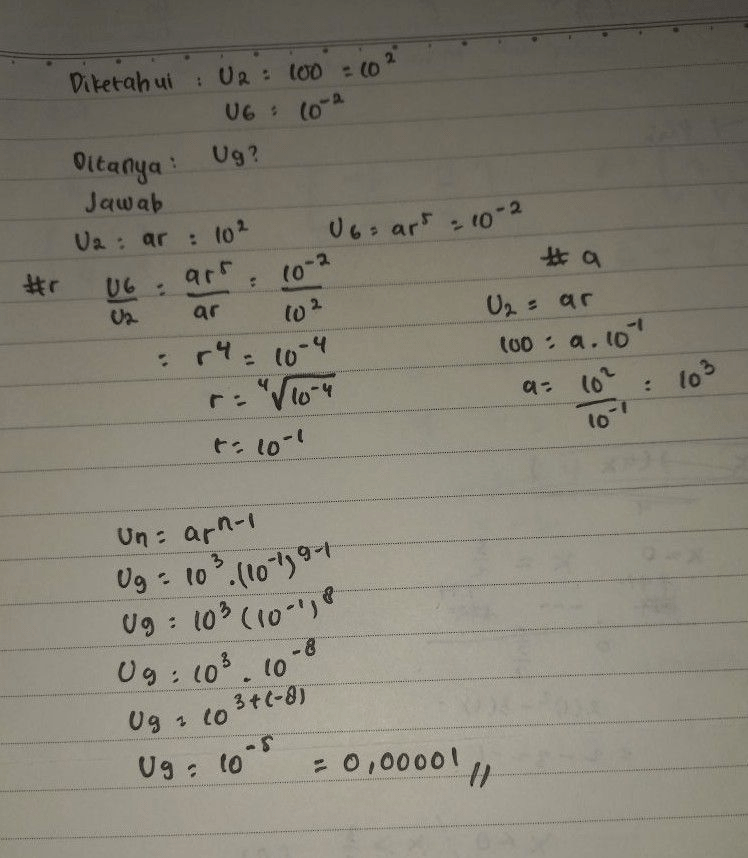 Diketahui : U2 = 100 = 10²
U6 = 10⁻²
Ditanya : U9?
Jawab
U2 = ar = 10² U6 = ar⁵ = 10⁻²
#r U6/U2 = ar⁵/ar = 10⁻²/10²
= r⁴ = 10⁻⁴
r = ⁴√10⁻⁴
r = 10⁻¹
# a
U2 = ar
100 = a . 10⁻¹
a = 10²/10⁻¹ = 10³
Un = arⁿ⁻¹
U9 = 10³ . (10⁻¹)⁹⁻¹
U9 = 10³ (10⁻¹)⁸
U9 = 10³ . 10⁻⁸
U9 = 10³⁺⁽⁻⁸⁾
U9 = 10⁻⁵ = 0,00001 //